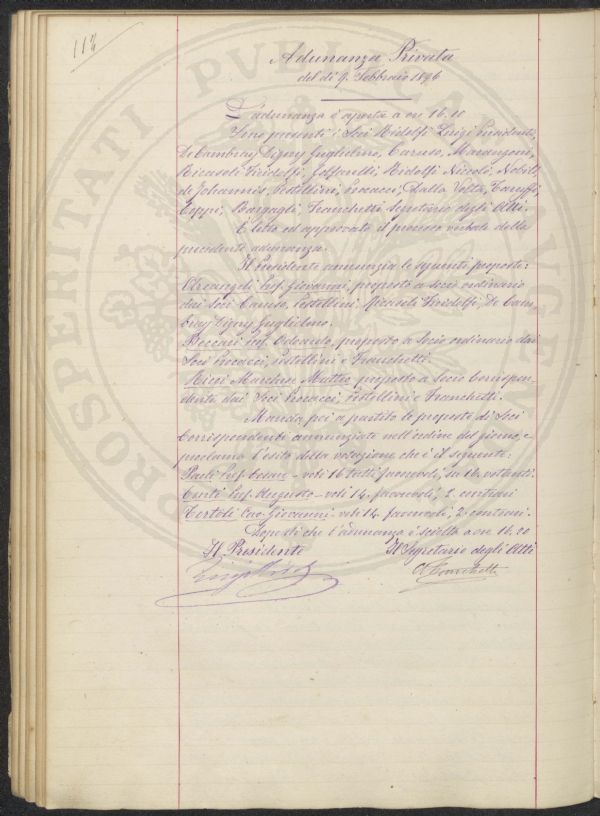 112
Adunanza Privata
del dì 9. Febbraio 1896
L'adunanza è aperta a ore 16.10
Sono presenti i Soci Ridolfi Luigi Presidente,
De Cambray Digny Guglielmo, Caruso, Marangoni,
Ricasoli Firidolfi, Ridolfi Niccolò, Nobili,
de Johannis, Pestellini, Procacci, Dalla Volta, Taruffi,
Bargagli, Franchetti Segretario degli Atti.
È letto ed approvato il processo verbale della
precedente adunanza.
Il Presidente annunzia le seguenti proposte:
Arcangeli Prof. Giovanni, proposto a socio ordinario
dai Soci Caruso, Pestellini, Ricasoli Firidolfi, De Cam-
bray Digny Guglielmo.
Beccari cav. Odoardo, proposto a Socio ordinario dai
Soci Procacci, Pestellini e Franchetti.
Ricci Marchese Matteo proposto a Socio Corrispon-
dente dai Soci Procacci, Pestellini e Franchetti.
Manda poi a partito le proposte di Soci
Corrispondenti annunziate nell'ordine del giorno, e
proclama l'esito della votazione che è il seguente:
Paoli Prof. Cesare - voti 16 tutti favorevoli, su 16 votanti.
Conti Prof. Augusto - voti 14. favorevoli, 2 contrari
Tortoli Cav. Giovanni - voti 14. favorevoli, 2 contrari.
Dopo di che l'adunanza è sciolta a ore 16.20
Il Presidente Il Segretario degli Atti
Luigi Ridolfi A Franchetti
PROSPERITATI PUBLICAE AUGENDAE